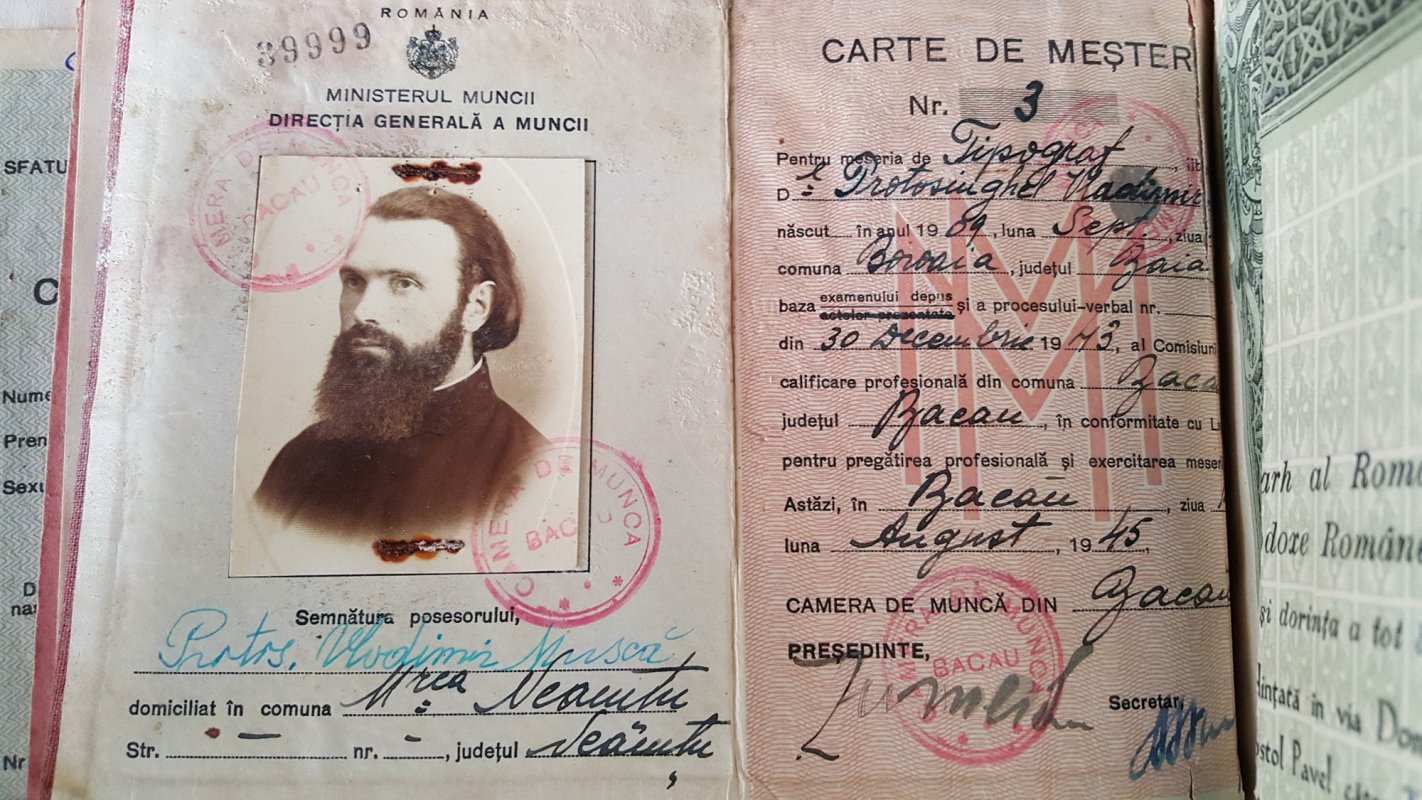 SFATU
C
Nume
Pren
Sexu
Nr
ROMÂNIA
39999
MINISTERUL MUNCII
DIRECȚIA GENERALĂ A MUNCII
CAMERA DE MUNCA
BACAU
CAMERA DE MUNCA
BACAU
Semnătura posesorului,
Protos. Vladimir Muscă
domiciliat în comuna M-rea Neamțu
Str. — nr. -, județul Neamțu
CARTE DE MEȘTER
Nr. 3
Pentru meseria de Tipograf
D-l Protosinghel Vladimir
născut în anul 1909, luna Sept., ziua
comuna Boroaia, județul Baia
baza examenului depus și a procesului-verbal nr.
actelor prezentate
din 30 Decembrie 1943, al Comisiuni
calificare profesională din comuna Baca
județul Bacau, în conformitate cu L
pentru pregătirea profesională și exercitarea meser
Astăzi, în Bacău, ziua
luna August, 1945,
CAMERA DE MUNCĂ DIN Bacau
PREȘEDINTE,
BACAU
Secretar,
arh al Româ
doxe Române
și dorința a tot
ințată în via Dom
ostol Pavel căt